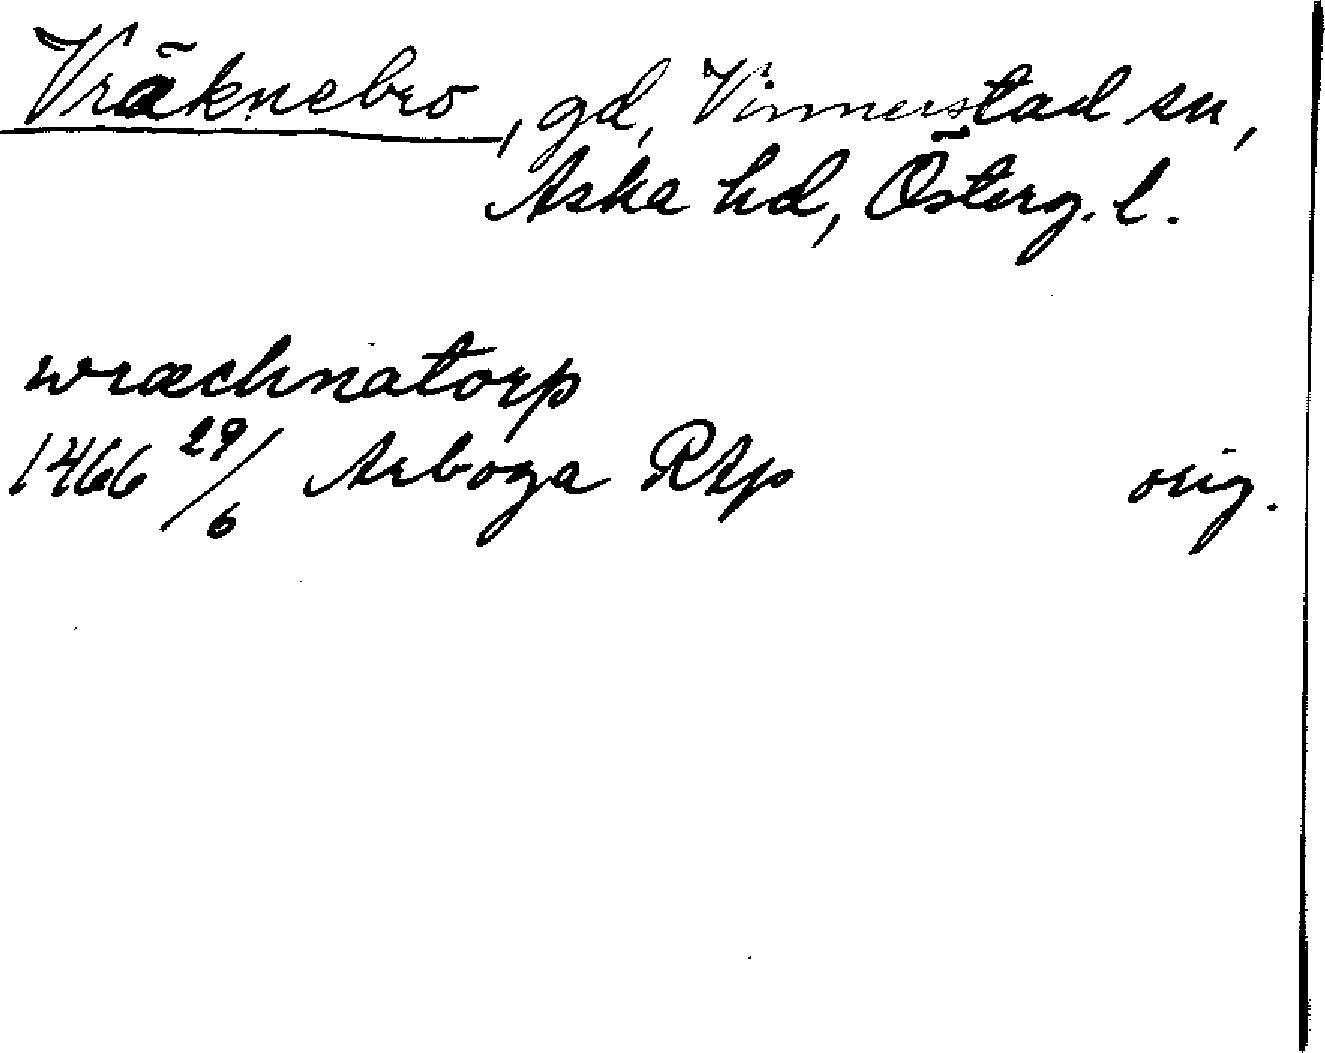 Vräknebro, gd, Vinnerstad sn,
Aska hd, Österg. l.
wræchnatorp
1466 29/6 Arboga RAp orig.